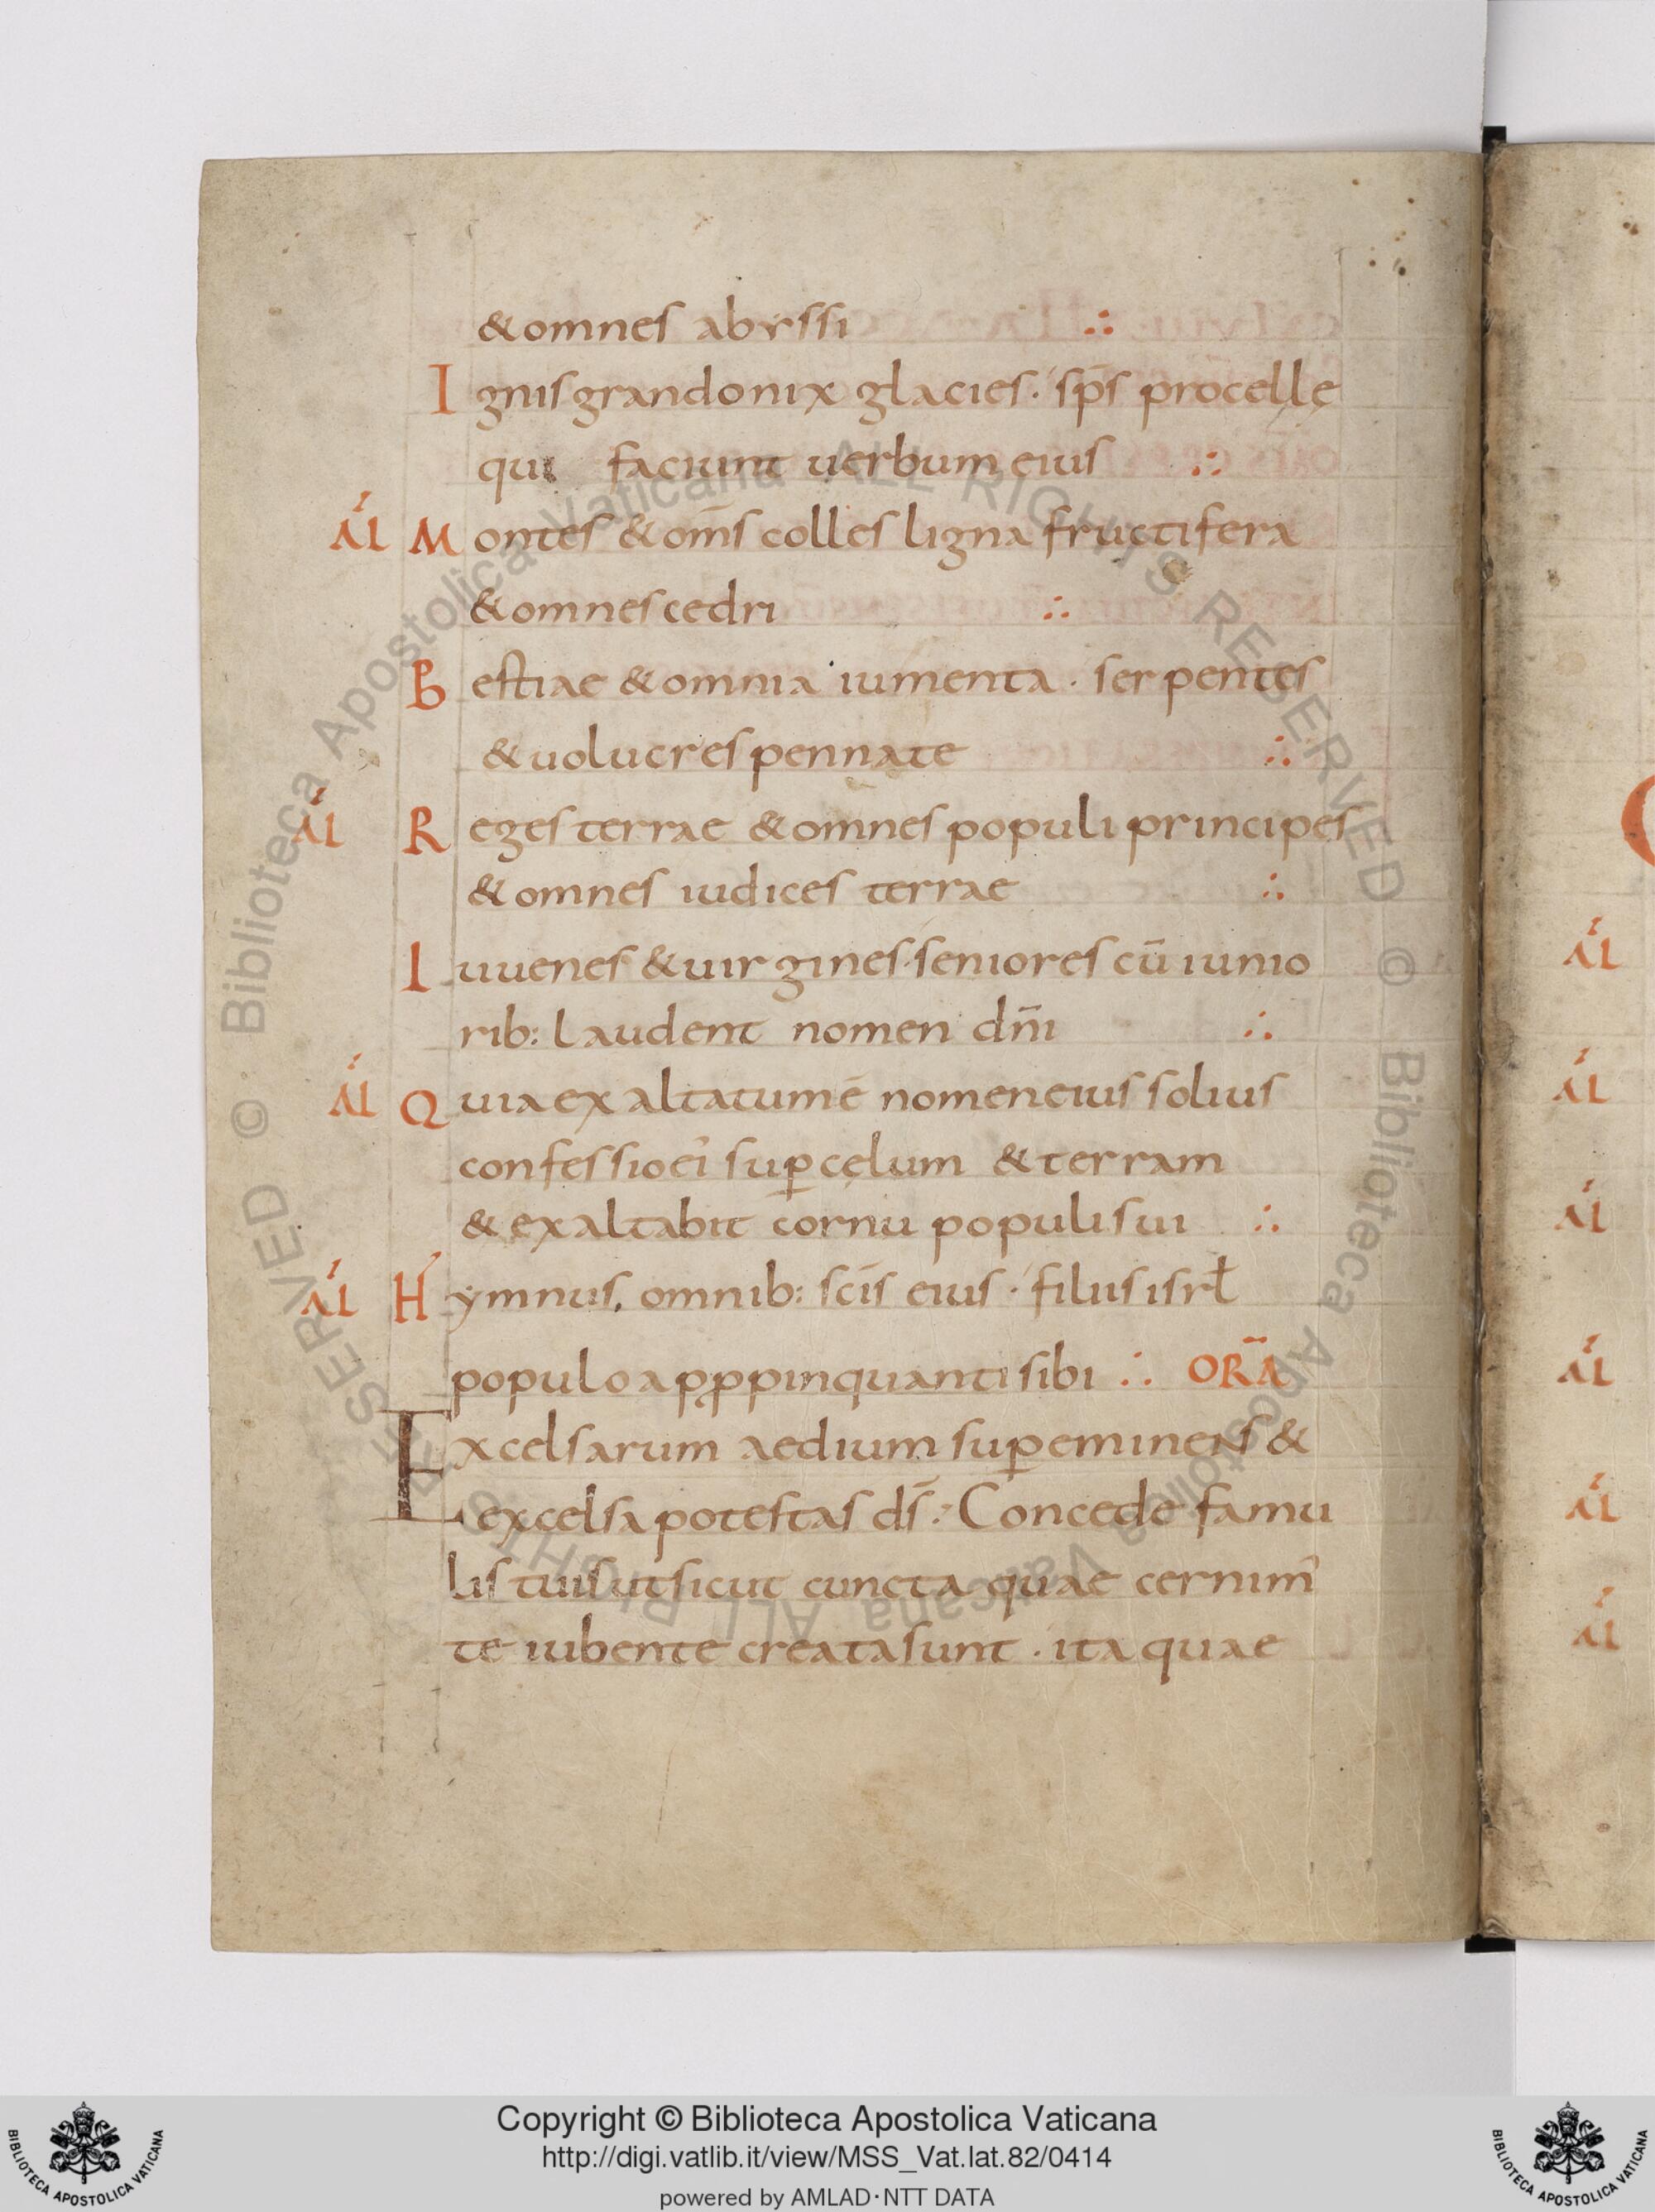 &omnes abyssi ∴
I gnis grando nix glacies · sp̄s procellę
qui faciunt uerbum eius ∴
AĹ M ontes & om̄s colles ligna fructifera
& omnes cedri ∴
B estiae & omnia iumenta · serpentes
& uolucres pennate ∴
AĹ R eges terrae & omnes populi principes
& omnes iudices terrae ∴
I uuenes & uirgines · seniores cū iunio
rib: laudent nomen dn̄i ∴
AĹ Q uia exaltatum ē nomen eius solius
confessio ei' sup̲ cęlum & terram
& exaltabit cornu populi sui ∴
AĹ H ymnus, omnib: sc̄is eius · filiis isrł
populo apꝓpinquanti sibi ∴ OR̄A
E xcelsarum aedium sup̲eminens &
excelsa potestas ds̄ : Concede famu
lis tuis ut sicut cuncta quae cernim'
te iubente creata sunt · ita quae
AĹ
AĹ
AĹ
AĹ
AĹ
AĹ
© Biblioteca Apostolica Vaticana ALL RIGHTS RESERVED © Biblioteca Apostolica Vaticana ALL RIGHTS RESERVED
Copyright © Biblioteca Apostolica Vaticana
http://digi.vatlib.it/view/MSS_Vat.lat.82/0414
powered by AMLAD·NTT DATA
BIBLIOTECA APOSTOLICA VATICANA
BIBLIOTECA APOSTOLICA VATICANA